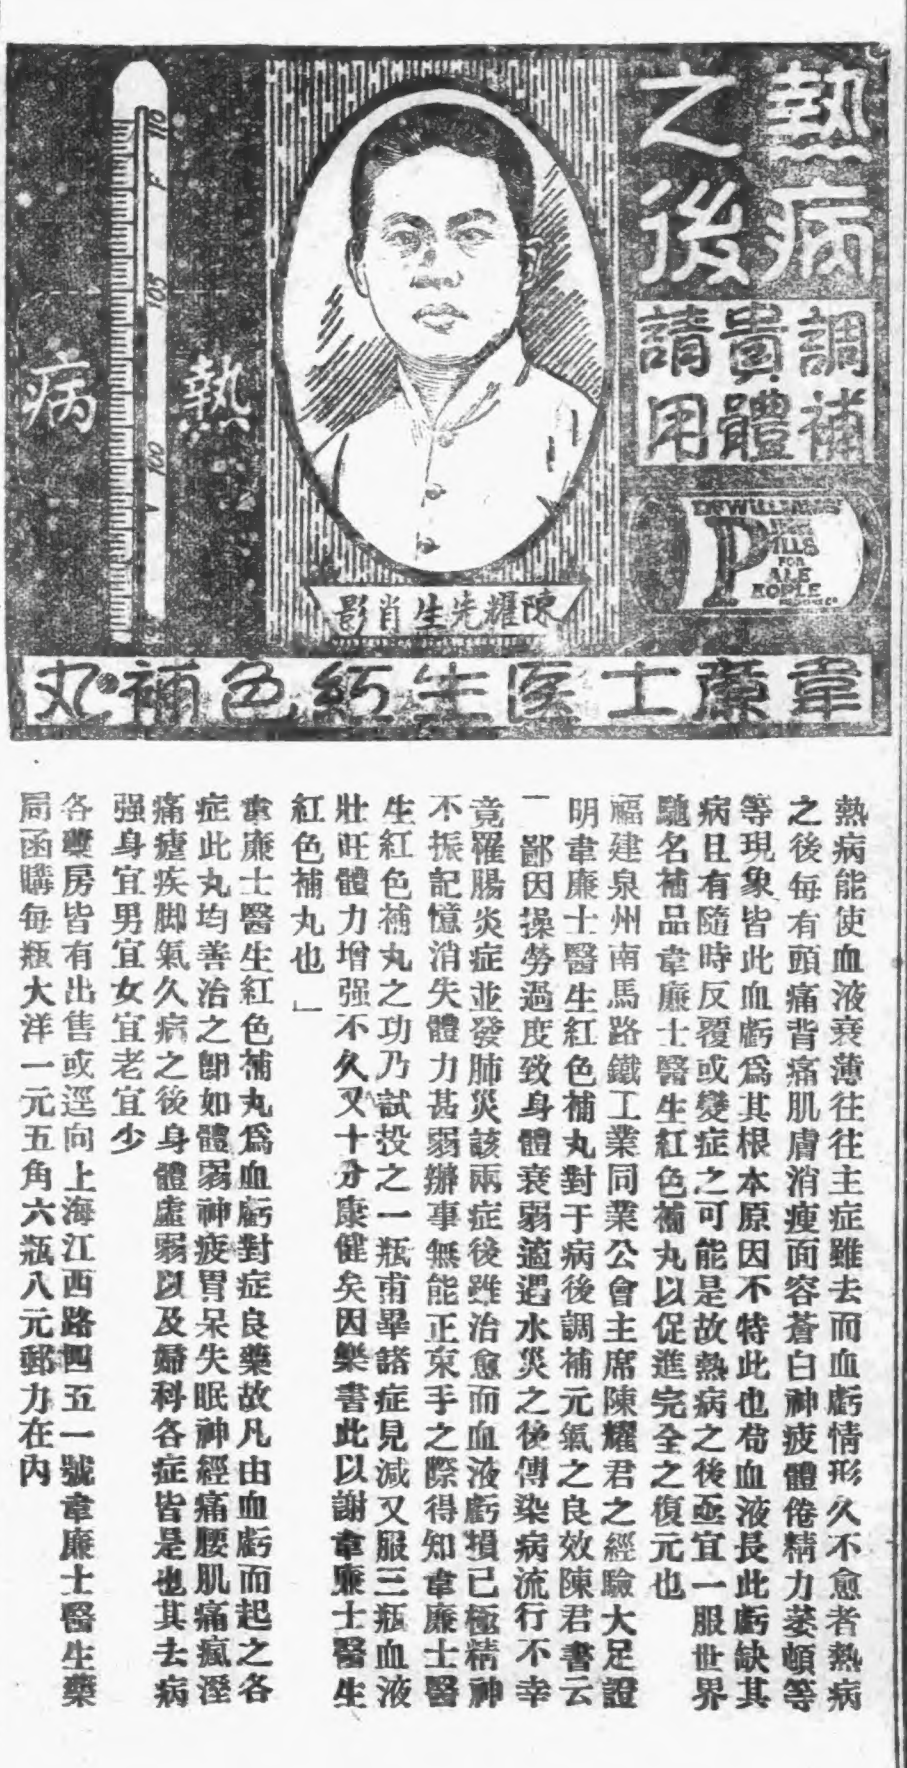 熱病
之後
調補
貴體
請用
DR WILLIAMS'
PINK
PILLS
FOR
PALE
PEOPLE
110
F
105
100
熱
病
陳耀先生肖影
韋廉士医生紅色補丸
熱病能使血液衰薄往往主症雖去而血虧情形久不愈者熱病
之後每有頭痛背痛肌膚消瘦面容蒼白神疲體倦精力萎頓等
等現象皆此血虧爲其根本原因不特此也苟血液長此虧缺其
病且有隨時反覆或變症之可能是故熱病之後亟宜一服世界
馳名補品韋廉士醫生紅色補丸以促進完全之復元也
福建泉州南馬路鐵工業同業公會主席陳耀君之經驗大足證
明韋廉士醫生紅色補丸對于病後調補元氣之良效陳君書云
「鄙因操勞過度致身體衰弱適遇水災之後傳染病流行不幸
竟罹腸炎症並發肺災該兩症後雖治愈而血液虧損已極精神
不振記憶消失體力甚弱辦事無能正束手之際得知韋廉士醫
生紅色補丸之功乃試投之一瓶甫畢諸症見減又服三瓶血液
壯旺體力增强不久又十分康健矣因樂書此以謝韋廉士醫生
紅色補丸也」
韋廉士醫生紅色補丸爲血虧對症良藥故凡由血虧而起之各
症此丸均善治之卽如體弱神疲胃呆失眠神經痛腰肌痛瘋溼
痛瘧疾脚氣久病之後身體虛弱以及婦科各症皆是也其去病
强身宜男宜女宜老宜少
各藥房皆有出售或逕向上海江西路四五一號韋廉士醫生藥
局函購每瓶大洋一元五角六瓶八元郵力在內